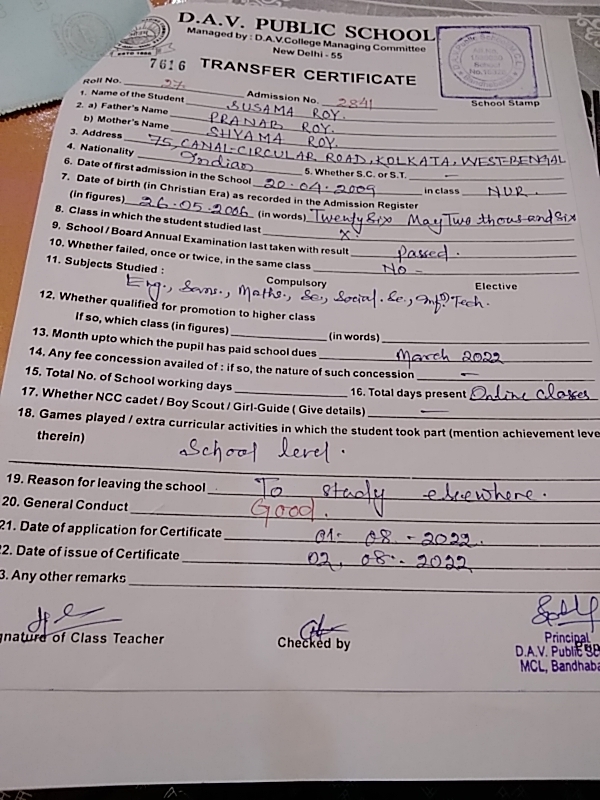 D.A.V. PUBLIC SCHOOL
Managed by : D.A.V.College Managing Committee
New Delhi - 55
7616 TRANSFER CERTIFICATE
School Stamp
Roll No. 27. Admission No. 2841
1. Name of the Student SUSAMA ROY.
2. a) Father's Name PRANAB ROY.
b) Mother's Name SHYAMA ROY.
3. Address 75, CANAL-CIRCULAR ROAD, KOLKATA, WEST-BENGAL
4. Nationality Indian 5. Whether S.C. or S.T. —
6. Date of first admission in the School 20-04-2009 in class NUR.
7. Date of birth (in Christian Era) as recorded in the Admission Register
(in figures) 26.05.2006 (in words) Twenty Six May Two thousand six
8. Class in which the student studied last X.
9. School / Board Annual Examination last taken with result Passed.
10. Whether failed, once or twice, in the same class No -
11. Subjects Studied : Compulsory Elective
Eng., Sans., Maths., Sc., Social. Sc., Infn Tech.
12. Whether qualified for promotion to higher class
If so, which class (in figures) (in words)
13. Month upto which the pupil has paid school dues March 2022
14. Any fee concession availed of : if so, the nature of such concession —
15. Total No. of School working days 16. Total days present Online Classes
17. Whether NCC cadet / Boy Scout / Girl-Guide ( Give details) —
18. Games played / extra curricular activities in which the student took part (mention achievement leve
therein) School level.
19. Reason for leaving the school To study elsewhere.
20. General Conduct Good.
21. Date of application for Certificate 01- 08 - 2022.
2. Date of issue of Certificate 02, 08 - 2022
3. Any other remarks
gnature of Class Teacher Checked by
Principal
D.A.V. Public
MCL, Bandhaba